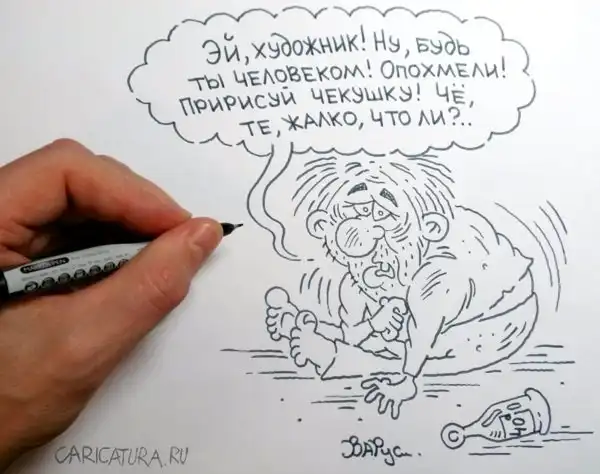 Эй, художник! Ну, будь
ты человеком! Опохмели!
Пририсуй чекушку! Чё,
те, жалко, что ли?..
Варус
CARICATURA.RU